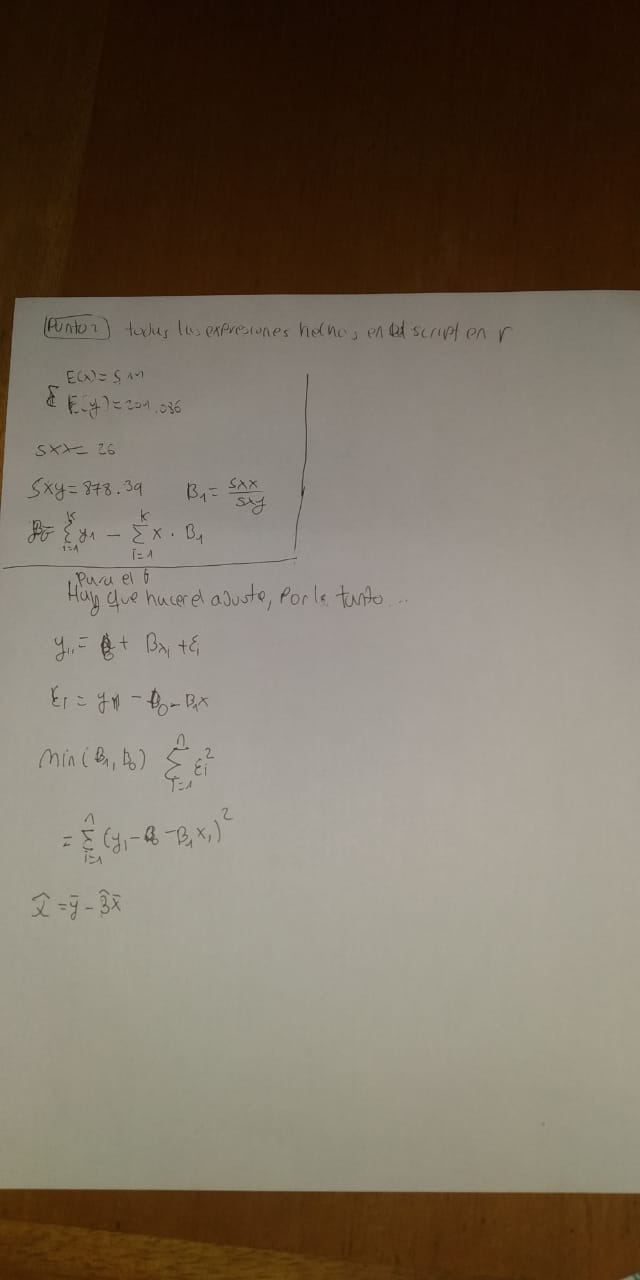 Punto 2 todas las expresiones hechas en el script en r
E(x)=5.
E(y)=201.036
sxx= 26
Sxy=878.39 B₁= sxx/sxy
B₀= Σ_{i=1}^{k} y₁ − Σ_{i=1}^{k} x · B₁
Para el b
Hay que hacer el ajuste, Por lo tanto...
yᵢ = β₀ + Bxᵢ + εᵢ
εᵢ = yᵢ − β₀ − B₁x
min(B₁, B₀) Σ_{i=1}^{n} εᵢ²
= Σ_{i=1}^{n} (yᵢ − β₀ − B₁xᵢ)²
α̂ = ȳ − β̂x̄